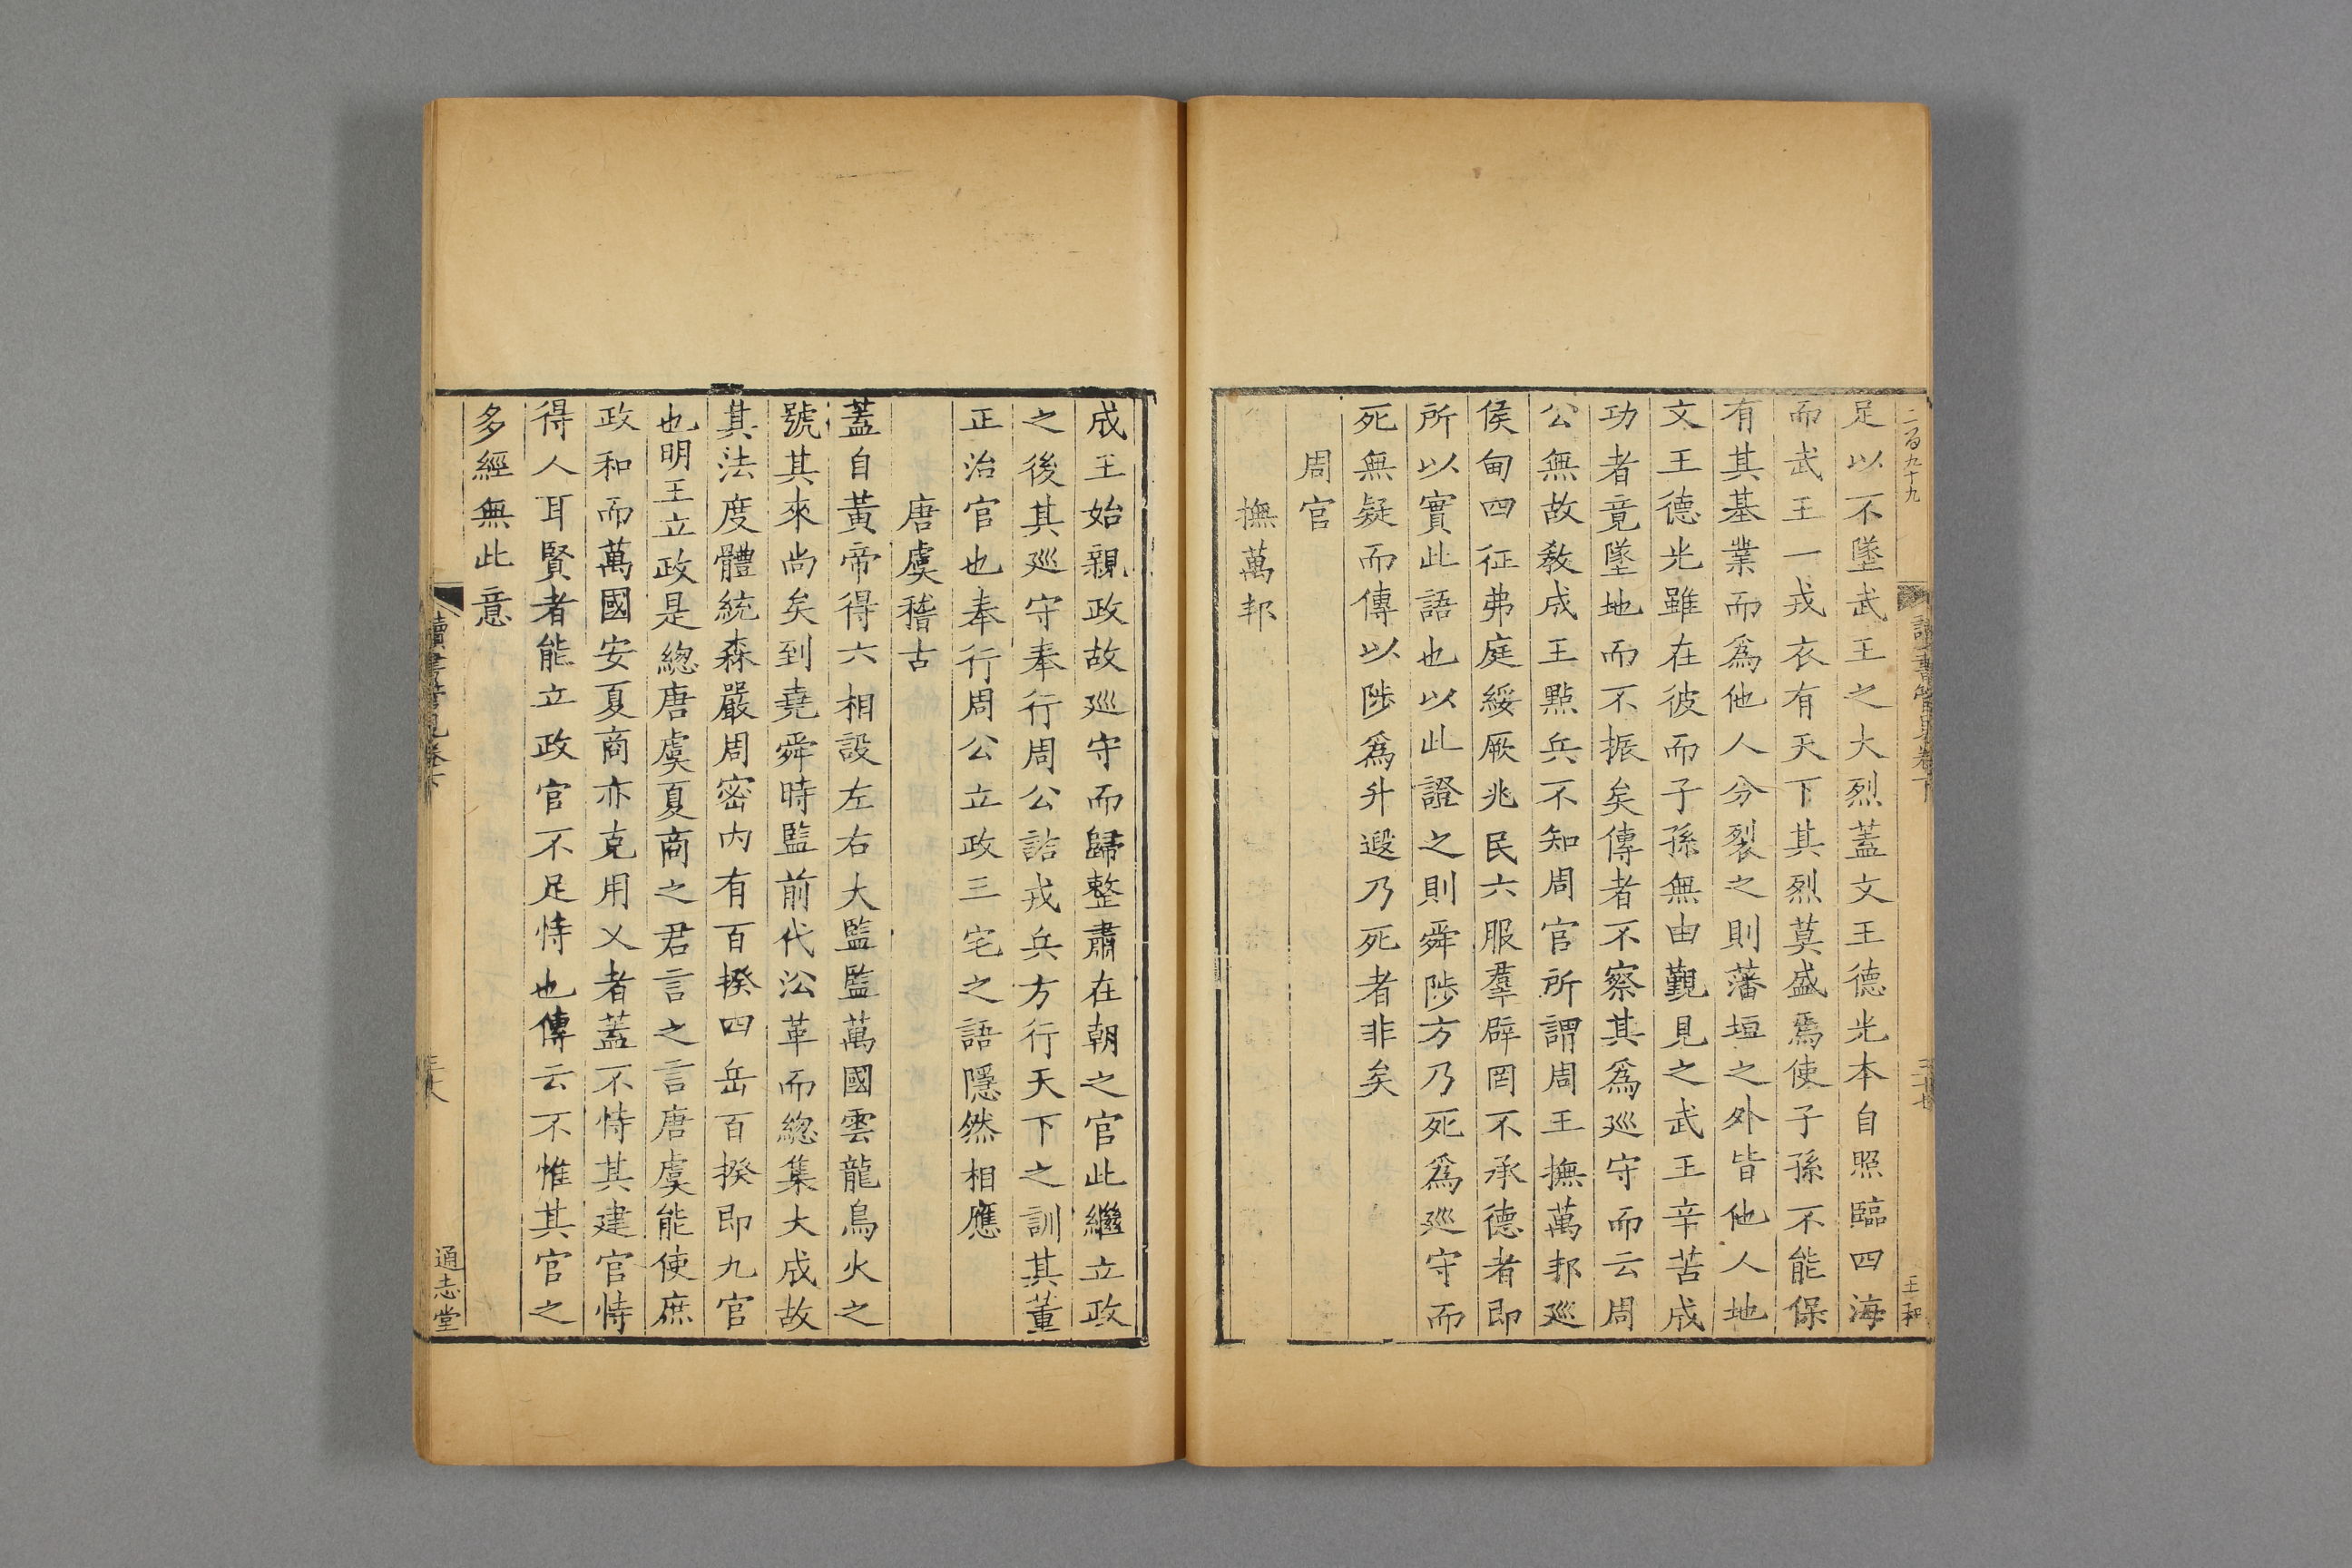 二百九十九
讀書管見卷下
王和
足以不墜武王之大烈蓋文王德光本自照臨四海
而武王一戎衣有天下其烈莫盛焉使子孫不能保
有其基業而爲他人分裂之則藩垣之外皆他人地
文王德光雖在彼而子孫無由覲見之武王辛苦成
功者竟墜地而不振矣傳者不察其爲巡守而云周
公無故敎成王點兵不知周官所謂周王撫萬邦巡
侯甸四征弗庭綏厥兆民六服羣辟罔不承德者即
所以實此語也以此證之則舜陟方乃死爲巡守而
死無疑而傳以陟爲升遐乃死者非矣
周官
撫萬邦
成王始親政故巡守而歸整肅在朝之官此繼立政
之後其巡守奉行周公詰戎兵方行天下之訓其董
正治官也奉行周公立政三宅之語隱然相應
唐虞稽古
蓋自黃帝得六相設左右大監監萬國雲龍鳥火之
號其來尚矣到堯舜時監前代沿革而總集大成故
其法度體統森嚴周密内有百揆四岳百揆即九官
也明王立政是總唐虞夏商之君言之言唐虞能使庶
政和而萬國安夏商亦克用乂者蓋不恃其建官恃
得人耳賢者能立政官不足恃也傳云不惟其官之
多經無此意
讀書管見卷下
通志堂